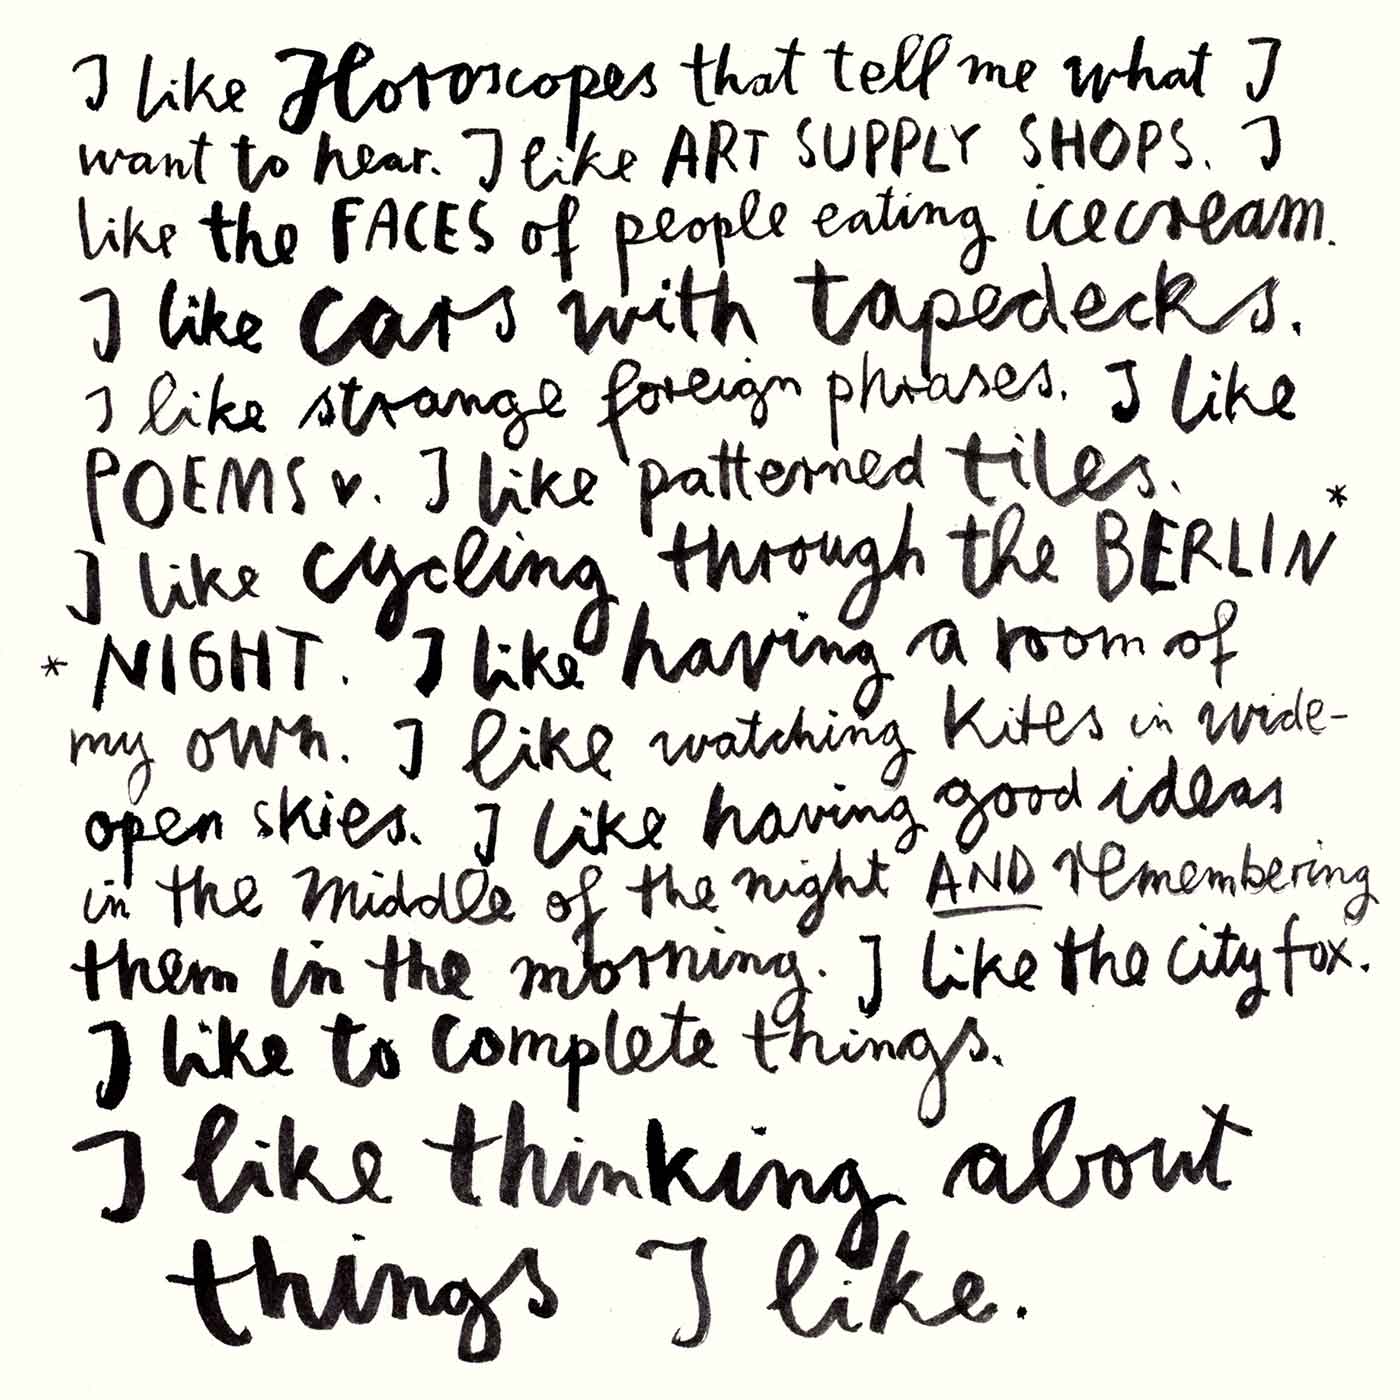 I like Horoscopes that tell me what I
want to hear. I like ART SUPPLY SHOPS. I
like the FACES of people eating icecream.
I like cars with tapedecks.
I like strange foreign phrases. I like
POEMS ♥. I like patterned tiles.
I like cycling through the BERLIN*
*NIGHT. I like having a room of
my own. I like watching kites in wide-
open skies. I like having good ideas
in the middle of the night AND remembering
them in the morning. I like the city fox.
I like to complete things.
I like thinking about
things I like.